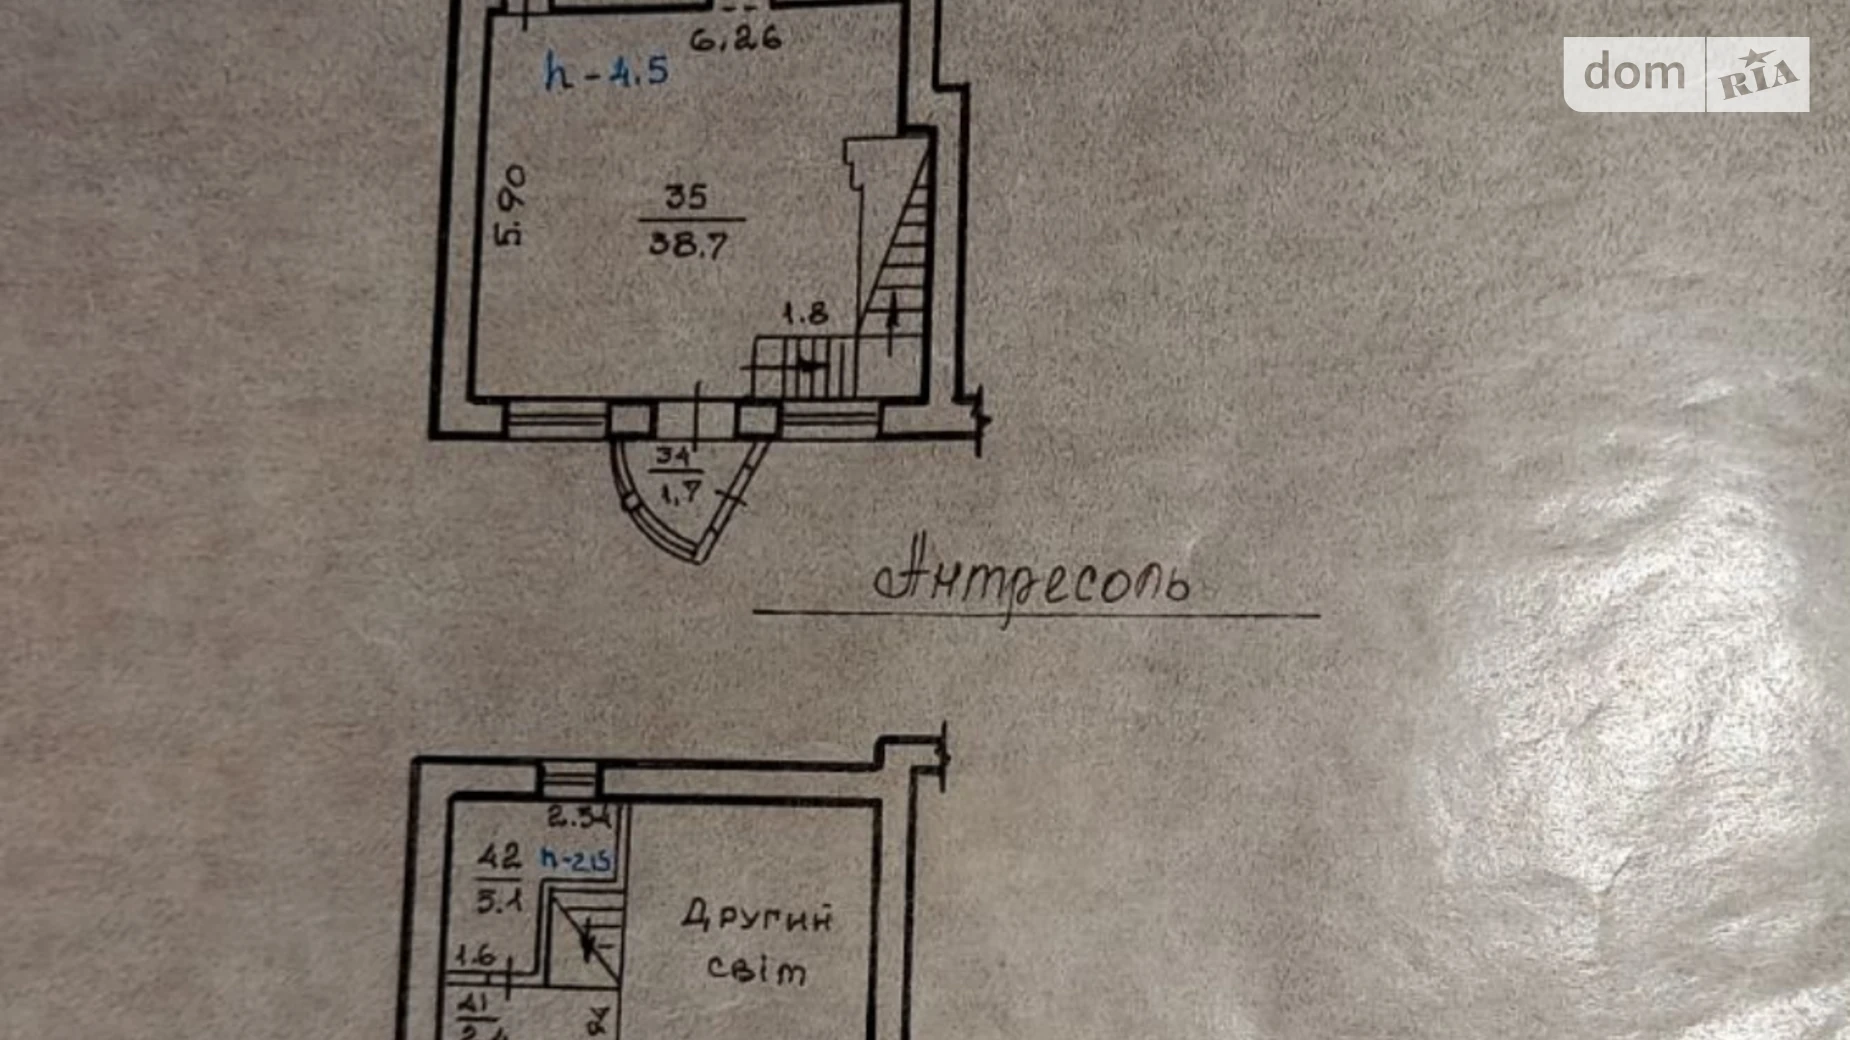 dom RIA
6,26
h-4.5
5.90
35
38.7
1.8
34
1,7
Антресоль
2.34
42 h-2.5
5.1
Другий
світ
1.6
41